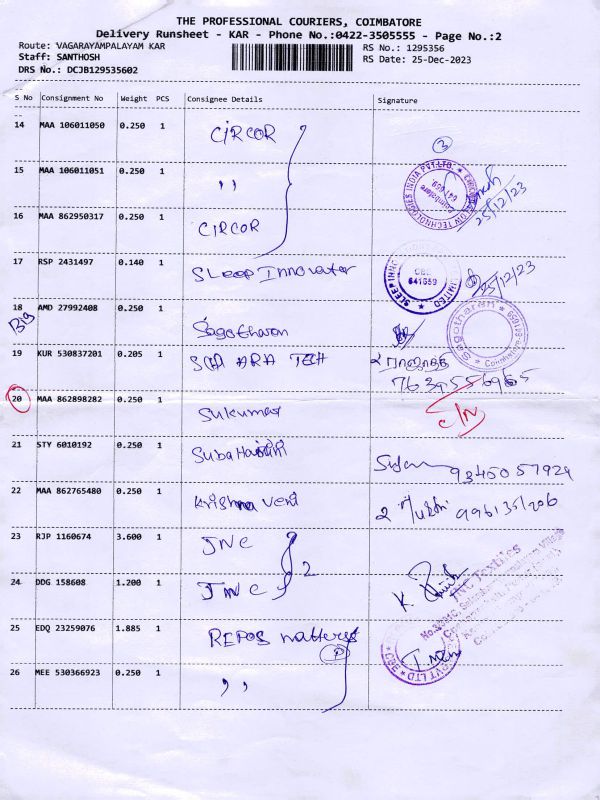 THE PROFESSIONAL COURIERS, COIMBATORE
Delivery Runsheet - KAR - Phone No.:0422-3505555 - Page No.:2
Route: VAGARAYAMPALAYAM KAR
RS No.: 1295356
Staff: SANTHOSH
RS Date: 25-Dec-2023
DRS No.: DCJB129535602
S No Consignment No Weight PCS Consignee Details Signature
14 MAA 106011050 0.250 1 CIRCOR
3
15 MAA 106011051 0.250 1 ,,
641659
25/12/23
16 MAA 862950317 0.250 1 CIRCOR
17 RSP 2431497 0.140 1 SLeep Innovator
CBE
641659
25/12/23
18 AMD 27992408 0.250 1 Sagotharan
Big
Sagotharan
19 KUR 530837201 0.205 1 TECH
20 MAA 862898282 0.250 1 Sukumar
C/N
21 STY 6010192 0.250 1
9345057924
22 MAA 862765480 0.250 1 Krishna Veni
23 RJP 1160674 3.600 1 JNC
2
24 DDG 158608 1.200 1 JNC
K.
Textiles
25 EDQ 23259076 1.885 1 REPOS mattress
PVT LTD
CBE
26 MEE 530366923 0.250 1 ,,